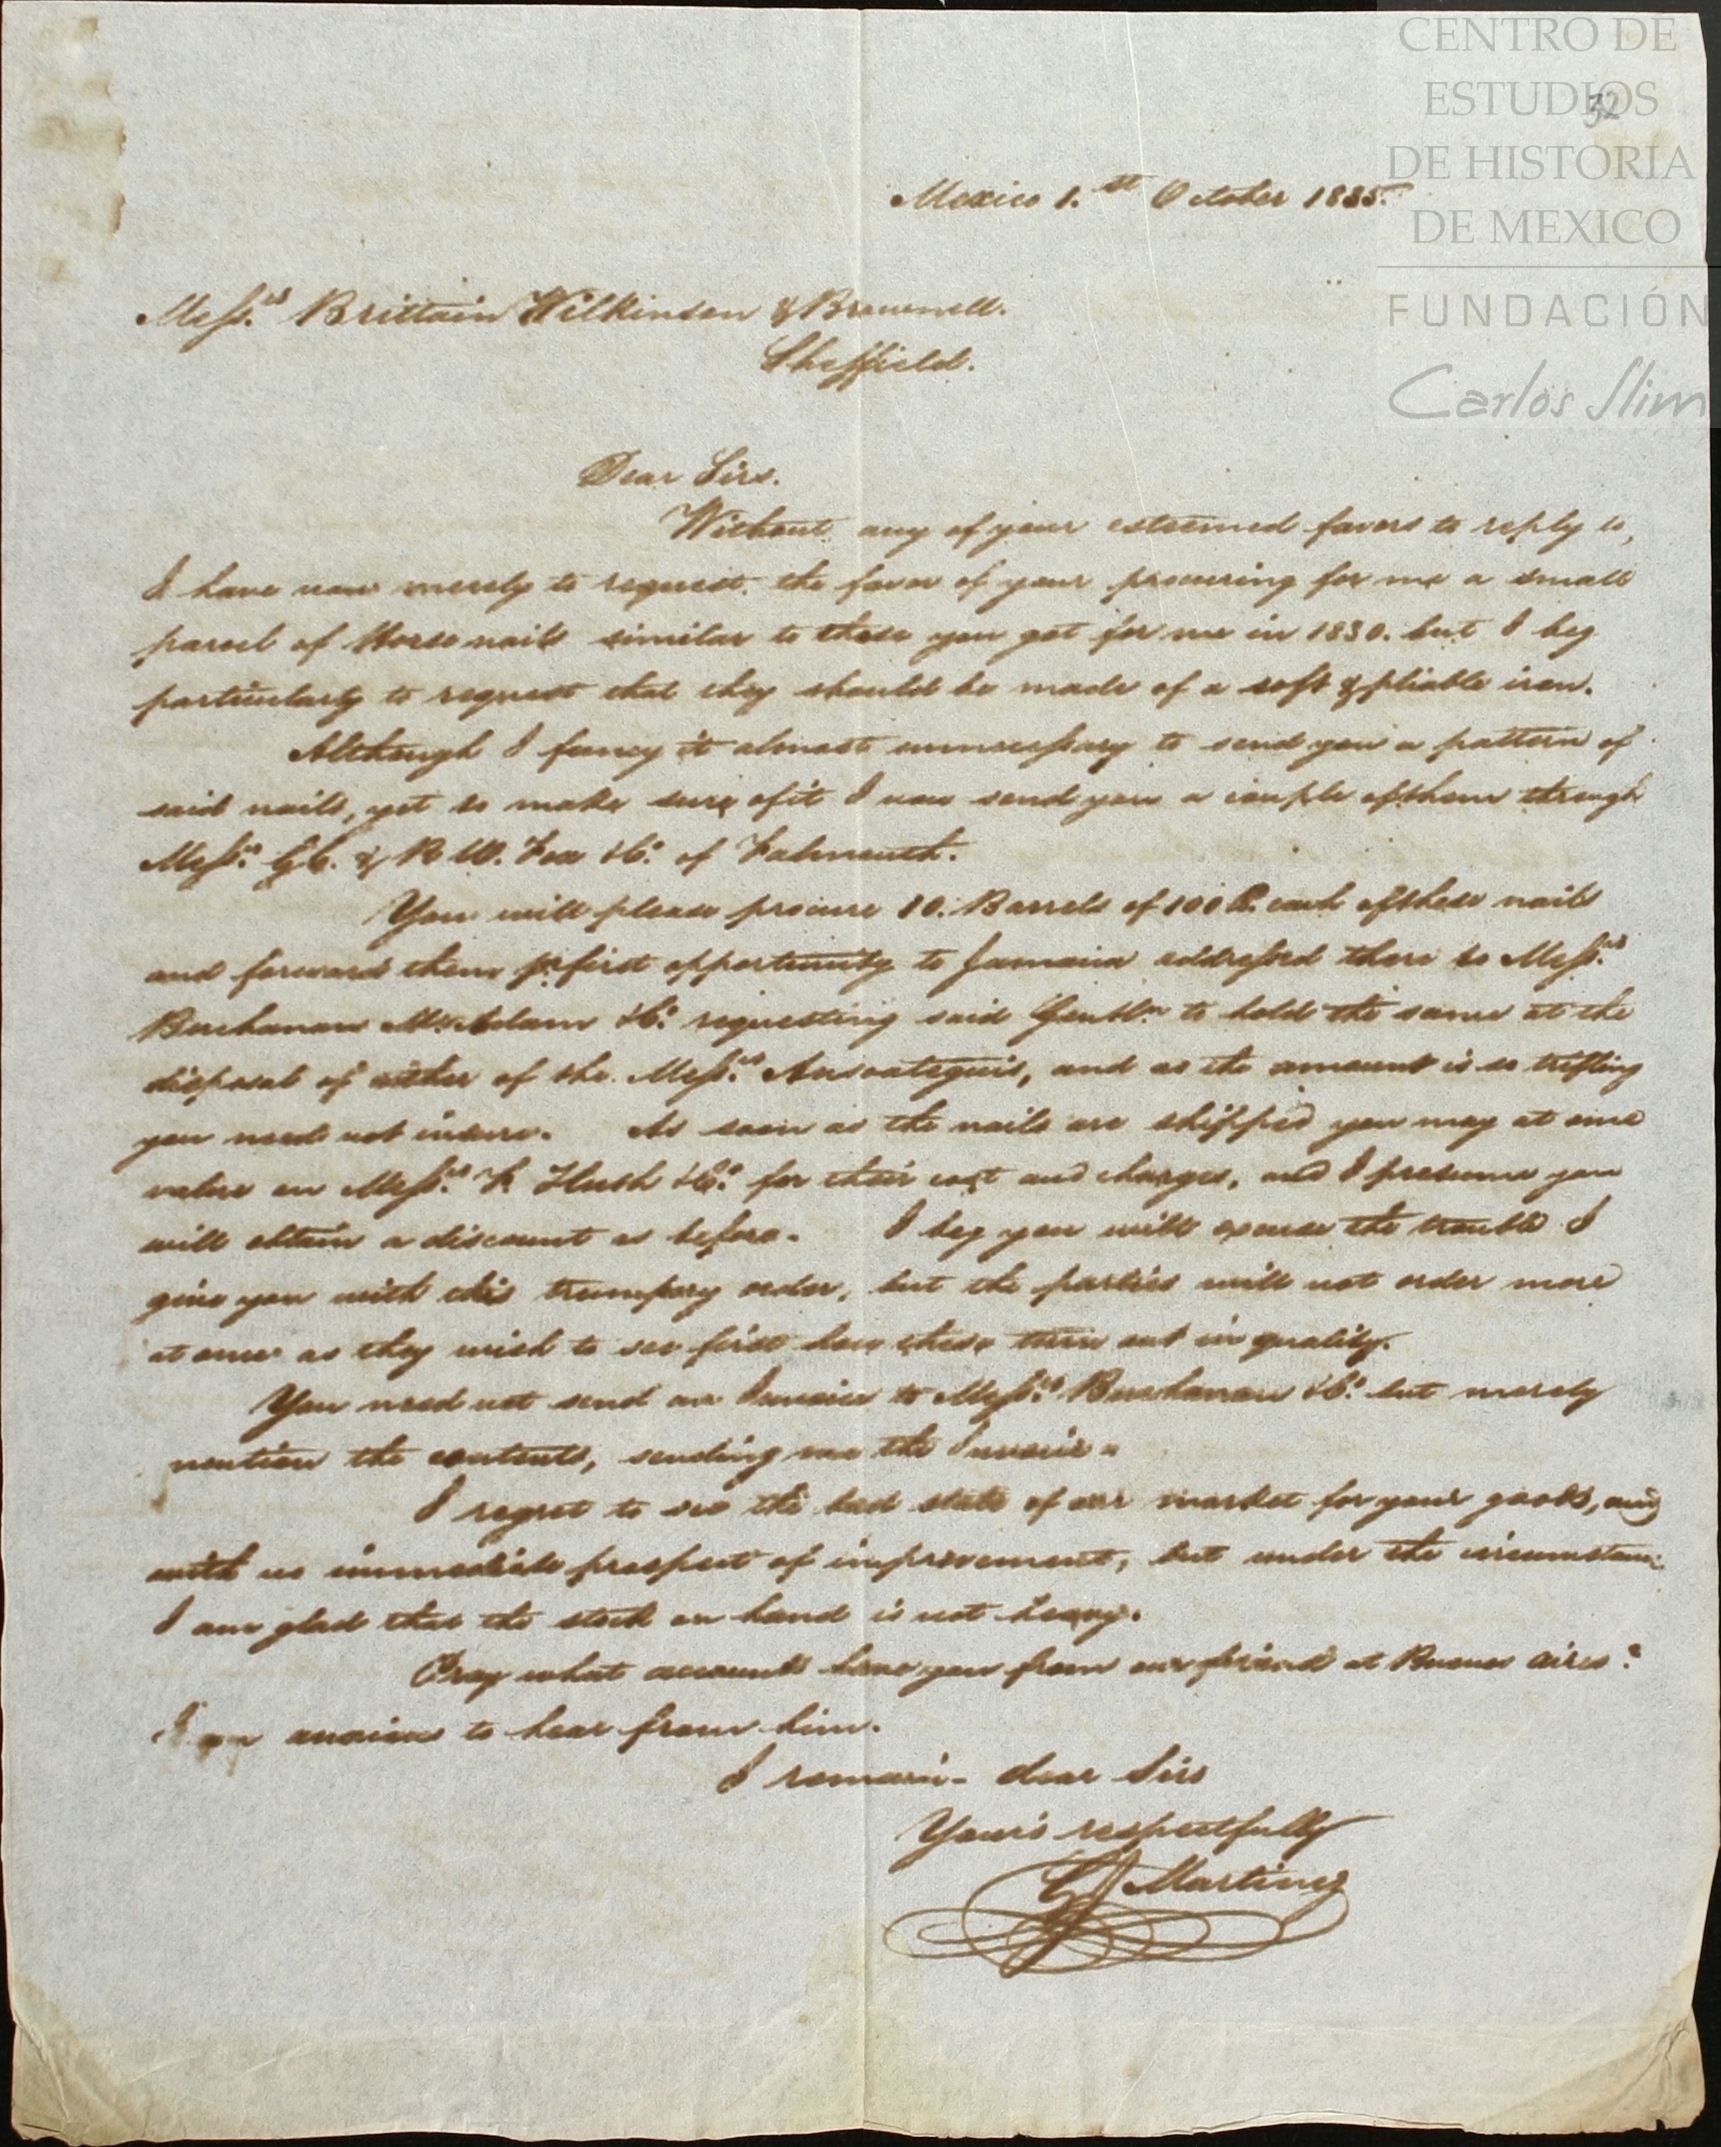 CENTRO DE
ESTUDIOS
DE HISTORIA
DE MEXICO
FUNDACIÓN
Carlos Slim
32
Mexico 1.st October 1835.
Messrs. Brittain Wilkinson & Brownell.
Sheffield.
Dear Sirs.
Without any of your esteemed favors to reply to,
I have now merely to request the favor of your procuring for me a small
parcel of Horse nails similar to those you got for me in 1830. but I beg
particularly to request that they should be made of a soft & pliable iron.
Although I fancy it almost unnecessary to send you a pattern of
said nails, yet to make sure of it I now send you a couple of them through
Messrs. G.C. & R.W. Fox & Co. of Falmouth.
You will please procure 10. Barrels of 100 lb. each of these nails
and forward them pr. first opportunity to Jamaica addressed there to Messrs.
Buchanan McAdam & Co. requesting said Gentln. to hold the same at the
disposal of either of the Messrs. Ansoateguis, and as the amount is so trifling
you need not insure. As soon as the nails are shipped you may at once
value on Messrs. F. Huth & Co. for their cost and charges, and I presume you
will obtain a discount as before. I beg you will excuse the trouble I
give you with this trumpery order, but the parties will not order more
at once as they wish to see first how these turn out in quality.
You need not send an Invoice to Messrs. Buchanan & Co. but merely
mention the contents, sending me the Invoice.
I regret to see the bad state of our market for your goods, and
with no immediate prospect of improvement, but under the circumstanc.
I am glad that the stock on hand is not heavy.
Pray what accounts have you from our friend at Buenos Aires?
I am anxious to hear from him.
I remain dear Sirs
Your's respectfully
Martinez